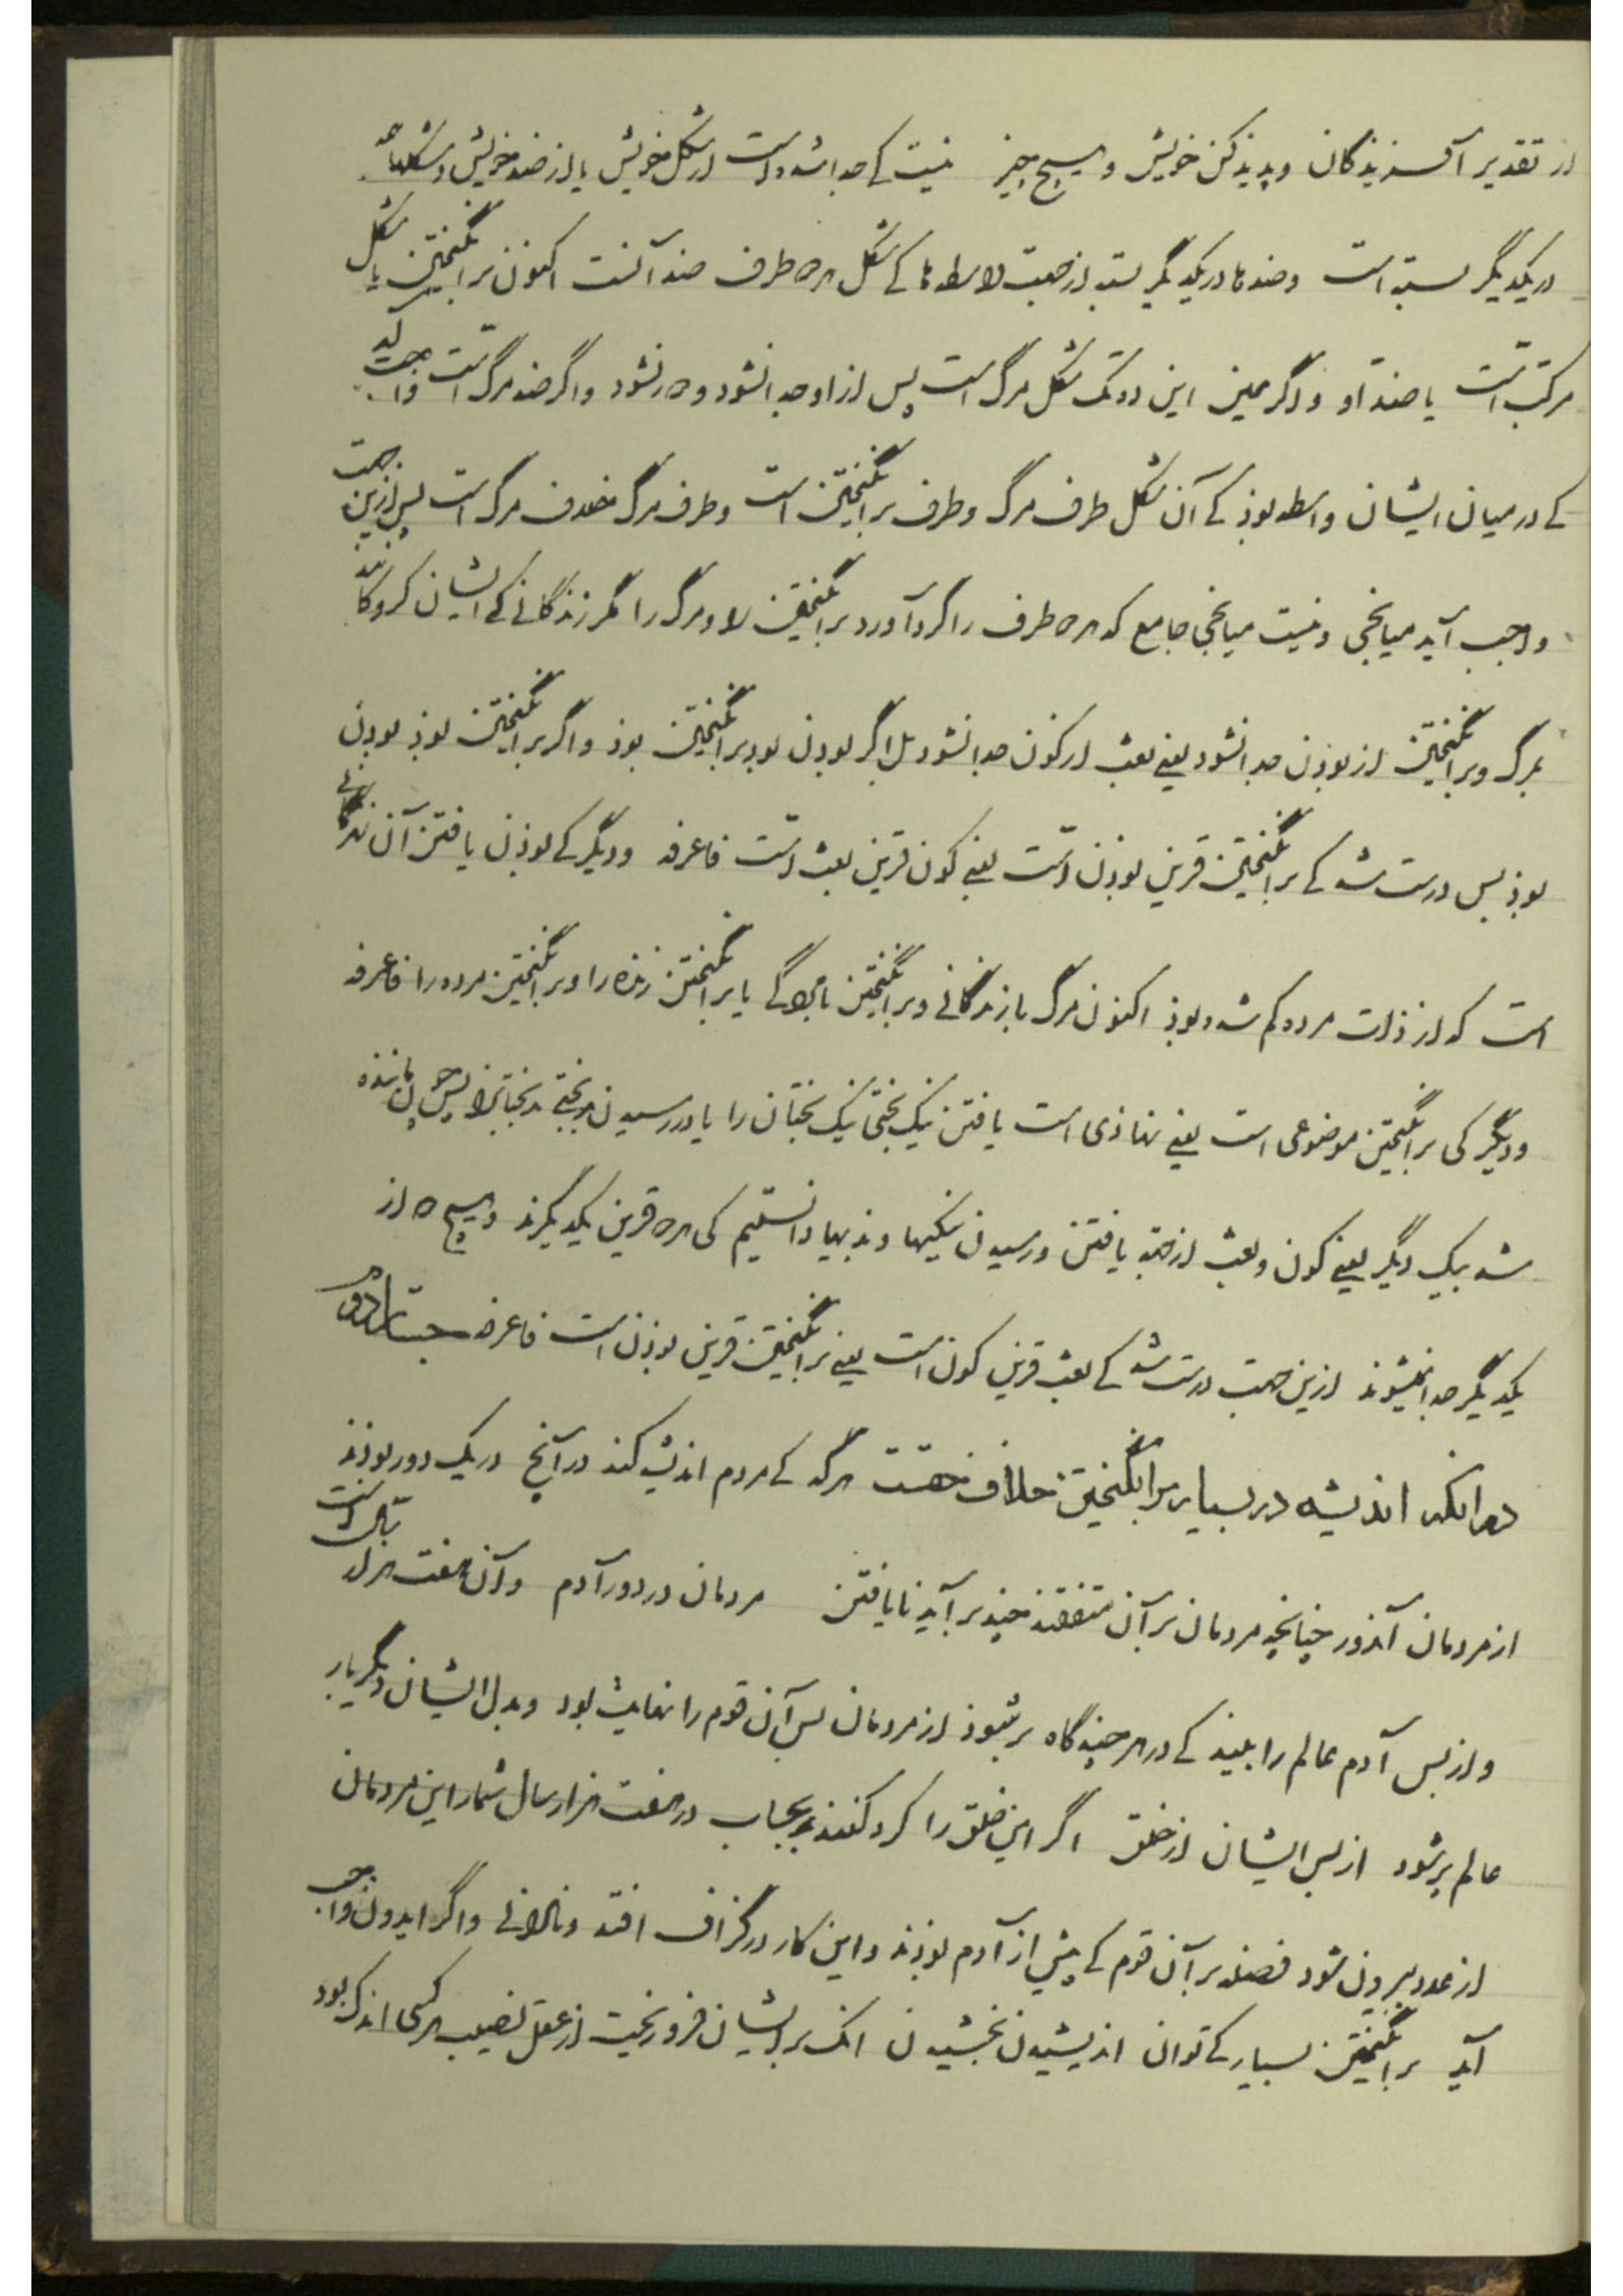 از تقدیر آفریذگان وپدیذ کن خویش و هیچ چیز نیست کے جدا شده است از شکل خویش یا از ضد خویش و شکلها همه
در یکدیگر بسته است وضدها در یکدیگر بسته از جهت واسطه‌ها کے شکل هر ه طرف ضد آنست اکنون برانگیختن یا شکل
مرکست است یا ضد او واگر چنین این دو تک شکل مرگ است پس از او جدا نشود و ه‍ نشود واگر ضد مرگ است واجب آید
کے در میان ایشان واسطه بوذ کے آن شکل طرف مرگ وطرف برانگیختن است وطرف مرگ خلاف مرگ است پس ازین جهت
واجب آید میانجی ونیست میانجی جامع که هر ه طرف را گرد آورد برانگیختن را ومرگ را مگر زندگانے کے ایشان
بمرگ وبرانگیختن از بوذن جدا نشود یعنے بعث از کون جدا نشود بل اگر بوذن بود برانگیختن بوذ واگر برانگیختن بوذ بوذن
بوذ پس درست شد کے برانگیختن قرین بوذن است یعنے کون قرین بعث است فاعرفه ودیگر کے بوذن یافتن آن زندگانے
است که از ذات مرده کم شده بوذ اکنون مرگ با زندگانے وبرانگیختن با یا برانگیختن زنده را وبرانگیختن مرده را فاعرفه
ودیگر کی برانگیختن موضوعی است یعنے نهاذی است یافتن نیک بختی نیک بختان را یا در رسیدن بدبختے بدبختانرا پس چون ماننده
شد بیک دیگر یعنے کون وبعث از جهة یافتن ورسیدن نیکیها وبدیها دانستیم کی هر ه قرین یکدیگرند وهیچ ه از
یکدیگر جدا نمیشوند ازین جهت درست شد کے بعث قرین کون است یعنے برانگیختن قرین بوذن است فاعرفه جستار دوم
در انکه اندیشه در بسیار برانگیختن خلاف خفتست هرگه کے مردم اندیشه کند در آنچ در یک دور بوذند
از مردمان آنذور چنانچه مردمان بر آن متفقند چند بر آید نایافتن مردمان در دور آدم وآن هفت هزار سال است
واز پس آدم عالم را بینذ کے در هر چند گاه بر شوذ از مردمان پس آن قوم را نهایت بود وبدل ایشان دیگر بار
عالم پر شود از پس ایشان از خلق اگر این خلق را گرد کنند بحساب در هفت هزار سال شمار این مردمان
از عدد بیرون شود فضله بر آن قوم کے پیش از آدم بوذند واین کار در گزاف افتد ونادانے واگر ایدون واجب
آید برانگیختن بسیار کے توان اندیشیدن بخشیدن انک بر ایشان فرو ریخت از عقل نصیب هر کسی اندک بود